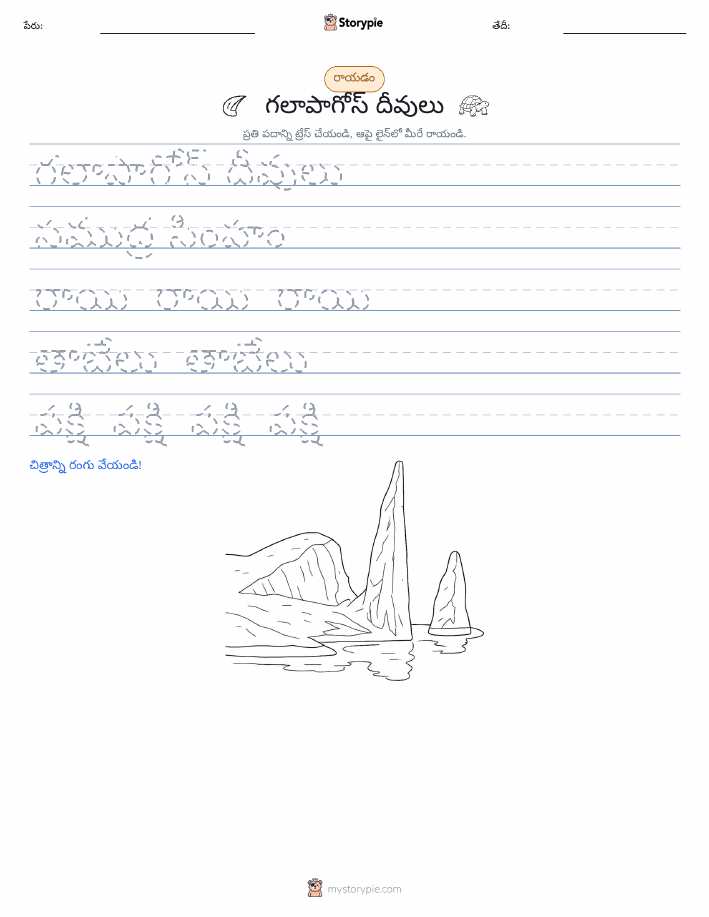 పేరు:
Storypie
తేదీ:
రాయడం
గలాపాగోస్ దీవులు
ప్రతి పదాన్ని ట్రేస్ చేయండి, ఆపై లైన్‌లో మీరే రాయండి.
గలాపాగోస్ దీవులు
సముద్ర సింహం
రాయి రాయి రాయి
తాబేలు తాబేలు
పక్షి పక్షి పక్షి పక్షి
చిత్రాన్ని రంగు వేయండి!
mystorypie.com